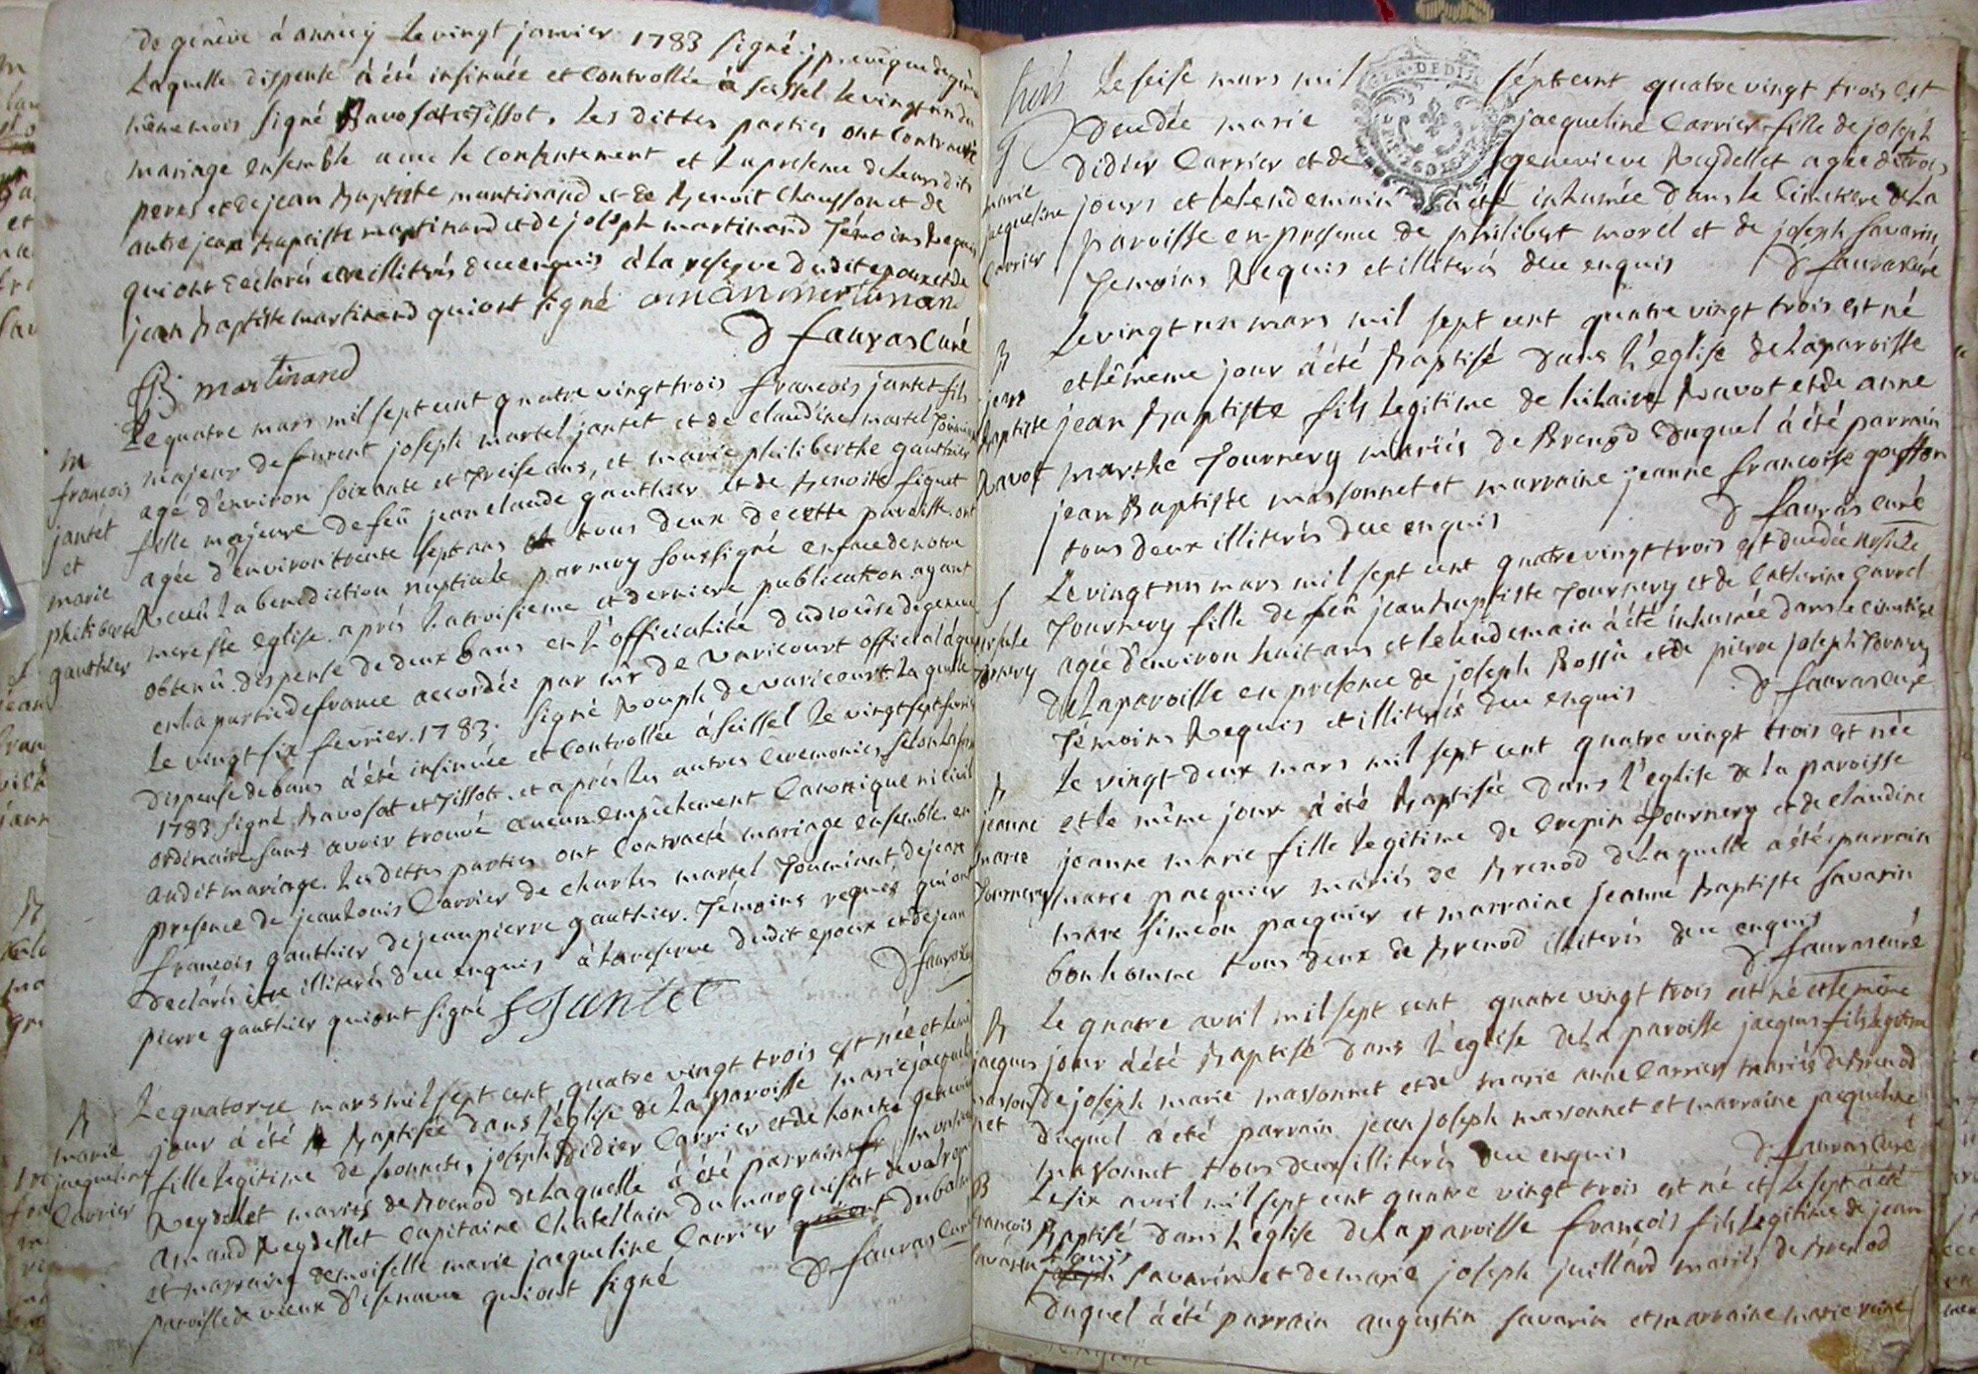 de genêve à annecy le vingt janvier 1783 signé j p eveque de genêve
laquelle dispense à été insinuée et controllée à seissel le vingt un du
même mois signé Ravosat et Tissot. les dittes parties ont contracté
mariage ensemble avec le consentement et la presence de leurs dits
peres et de jean Baptiste martinand et de Benoit Chausson et de
autre jean baptiste martinand et de joseph martinand Témoins requis
qui ont declarés être illitérés deue enquis à la reserve dudit epoux et de
jean Baptiste martinand qui ont signé
D fauvas Curé
martinand
m
françois
jantet
et
marie
philiberte
gauthier
Le quatre mars mil sept cent quatre vingt trois françois jantet fils
majeur de furent joseph martel jantet et de claudine martel
agé d'environ soixante et treise ans, et marie philiberthe gauthier
fille majeure de feû jean claude gauthier et de Benoite figuet
agée d'environ trente sept ans et tous deux de cette paroisse ont
Receû la benediction nuptiale par moy soussigné en face de notre
mere ste eglise. après la troisieme et derniere publication ayant
obtenû dispense de deux bans en l'officialité du diocèse de geneve
en la partie de france accordée par mr de varicourt official
le vingt six fevrier 1783. signé Rouph de varicourt la quelle
dispense de bans à été insinuée et controllée à seissel le vingt sept fevrier
1783 signé Ravosat et Tissot. et après les autres ceremonies selon la forme
ordinaire sans avoir trouvé aucun empêchement canonique ni civil
audit mariage. les dittes parties ont contracté mariage ensemble en
presence de jean Louis Carrier de charles martel Tourniant de jean
françois gauthier de jean pierre gauthier. Témoins requis qui ont
declarés être illiterés deue enquis à la reserve dudit epoux et de jean
pierre gauthier qui ont signé fJantet
D fauvas
B
marie
jacqueline
Carrier
Le quatorze mars mil sept cent quatre vingt trois est née et le même
jour à été Baptisée dans l'église de la paroisse marie jacqueline
fille legitime de honnetes joseph Didier Carrier et de honete genevieve
Reydellet mariés de Brenod de laquelle à été parrain
amand Reydellet capitaine chatellain du marquisat de valromey
et marraine demoiselle marie jacqueline Carrier qui ont
paroisse de vieux d'isenave qui ont signé
D fauvas Curé
S
marie
jacqueline
Carrier
Le seise mars mil sept cent quatre vingt trois est
decedée marie jacqueline Carrier fille de joseph
Didier Carrier et de genevieve Reydellet agée de trois
jours et le lendemain à été inhumée dans le cimitiere de la
paroisse en presence de philibert morel et de joseph savarin
Temoins Requis et illiterés deue enquis
D fauvas curé
B
jean
Baptiste
Ravot
Le vingt un mars mil sept cent quatre vingt trois est né
et le même jour à été Baptisé dans l'eglise de la paroisse
jean Baptiste fils legitime de hilaire Ravot et de anne
marthe Tournery mariés de Brenod duquel à été parrain
jean Baptiste massonnet et marraine jeanne françoise gousson
tous deux illiterés deue enquis
D fauvas curé
S
ursule
Tournery
Le vingt un mars mil sept cent quatre vingt trois est decedée ursule
Tournery fille de feû jean baptiste Tournery et de Catherine
agée d'environ huit ans et le lendemain à été inhumée dans le cimitiere
de la paroisse en presence de joseph Rossû et de pierre joseph Tournery
Témoins Requis et illiterés deue enquis
D fauvas curé
B
jeanne
marie
Tournery
Le vingt deux mars mil sept cent quatre vingt trois est née
et le même jour à été Baptisée dans l'eglise de la paroisse
jeanne marie fille legitime de Crepin Tournery et de claudine
marie pacquier mariés de Brenod de laquelle a été parrain
marc simeon pacquier et marraine jeanne Baptiste savarin
bonhomme tous deux de Brenod illiterés deue enquis
D fauvas curé
B
jacques
masson
net
Le quatre avril mil sept cent quatre vingt trois est né et le même
jour à été Baptisé dans l'eglise de la paroisse jacques fils legitime
de joseph marie massonnet et de marie anne Carrier mariés de Brenod
duquel à été parrain jean joseph massonnet et marraine jacqueline
massonnet tous deux illiterés deue enquis
D fauvas Curé
B
françois
savarin
Le six avril mil sept cent quatre vingt trois est né et le sept à été
Baptisé dans l'eglise de la paroisse françois fils legitime de jean
louis
joseph savarin et de marie joseph juillard mariés de Brenod
duquel à été parrain augustin savarin et marraine marie reine